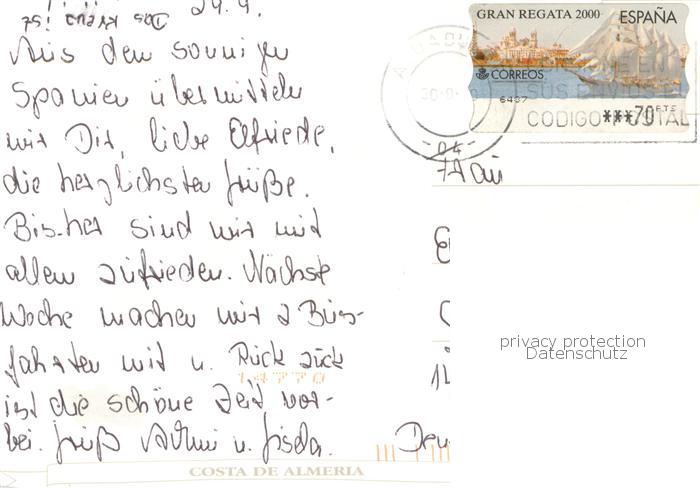 24.9.
Aus dem sonnigen
Spanien übermitteln
wir Dir, liebe Elfriede,
die herzlichsten Grüße.
Bisher sind wir mit
allem zufrieden. Nächste
Woche machen wir 2 Bus-
fahrten mit u. Ruck zuck
ist die schöne Zeit vor-
bei. Gruß u. Gisela.
GRAN REGATA 2000 ESPAÑA
CORREOS
6437
***70 PTS
CODIGO POSTAL
-04-
privacy protection
Datenschutz
14770
COSTA DE ALMERIA